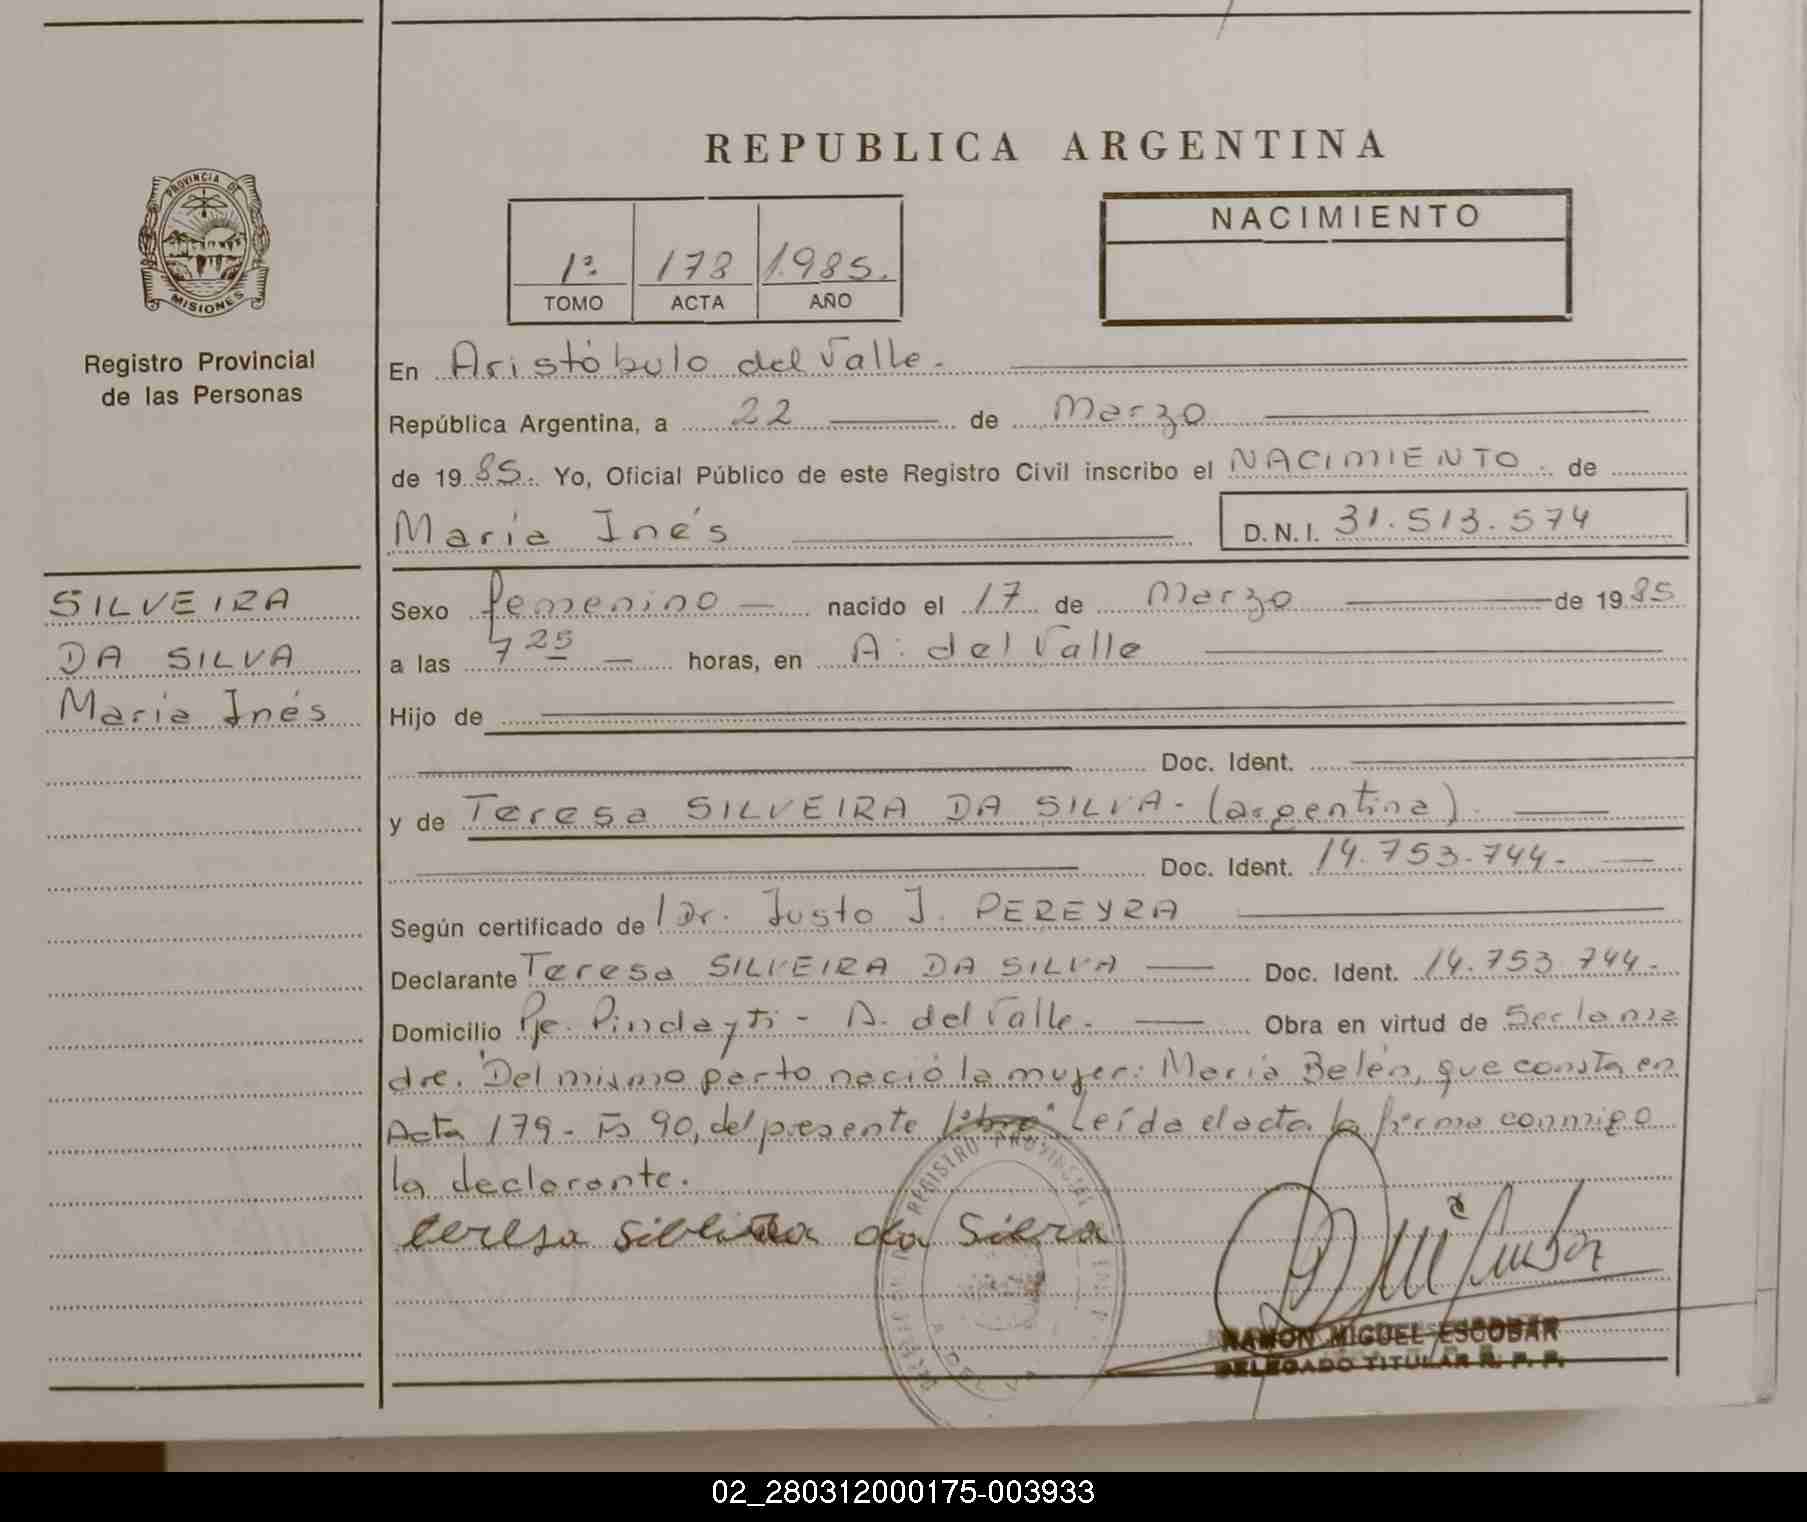 REPUBLICA ARGENTINA
PROVINCIA DE
MISIONES
Registro Provincial
de las Personas
1º 178 1.985.
TOMO ACTA AÑO
NACIMIENTO
En Aristóbulo del Valle.
República Argentina, a 22 de Marzo
de 1985. Yo, Oficial Público de este Registro Civil inscribo el NACIMIENTO. de
María Inés
D.N.I. 31.513.574
SILVEIRA
DA SILVA
María Inés
Sexo femenino nacido el 17 de Marzo de 1985
a las 7 25 horas, en A. del Valle
Hijo de
Doc. Ident.
y de Teresa SILVEIRA DA SILVA - (argentina).
Doc. Ident. 14.753.744.-
Según certificado de Dr. Justo J. PEREYRA
Declarante Teresa SILVEIRA DA SILVA Doc. Ident. 14.753.744.-
Domicilio Pje. Pindayti - A. del Valle. Obra en virtud de Ser la ma
dre. "Del mismo parto nació la mujer: María Belén, que consta en
Acta 179 - Fs 90, del presente libro" Leída el acta la firma conmigo
la declarante.
teresa da
REGISTRO PROVINCIAL
RAMON MIGUEL ESCOBAR
DELEGADO TITULAR R. P. P.
02_280312000175-003933